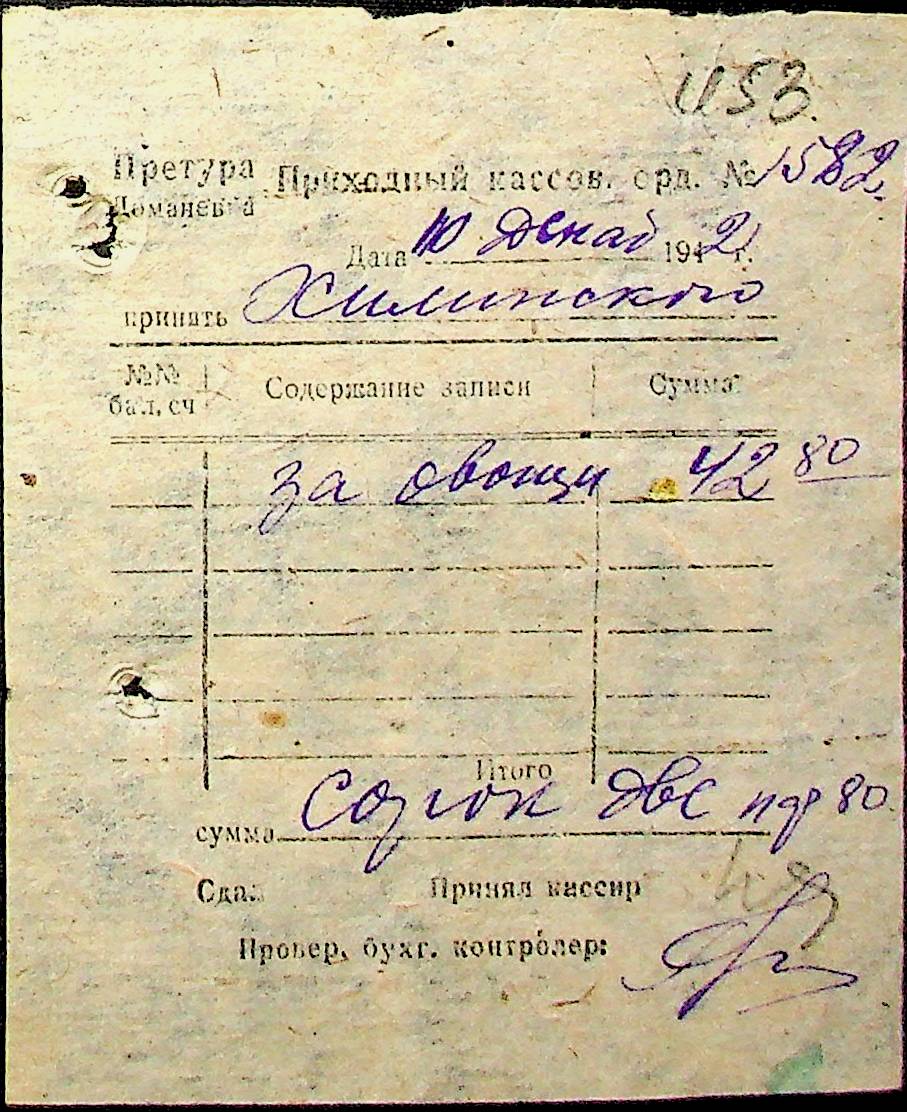 Претура Приходный кассов. орд. № 1582
Доманевка
Дата 10 декаб 1942 г.
принять Химинского
№№ бал. сч Содержание записи Сумма
за овощи 42 80
Итого
сумма сорок две 80
Сдал Принял кассир
Провер. бухг. контролер: